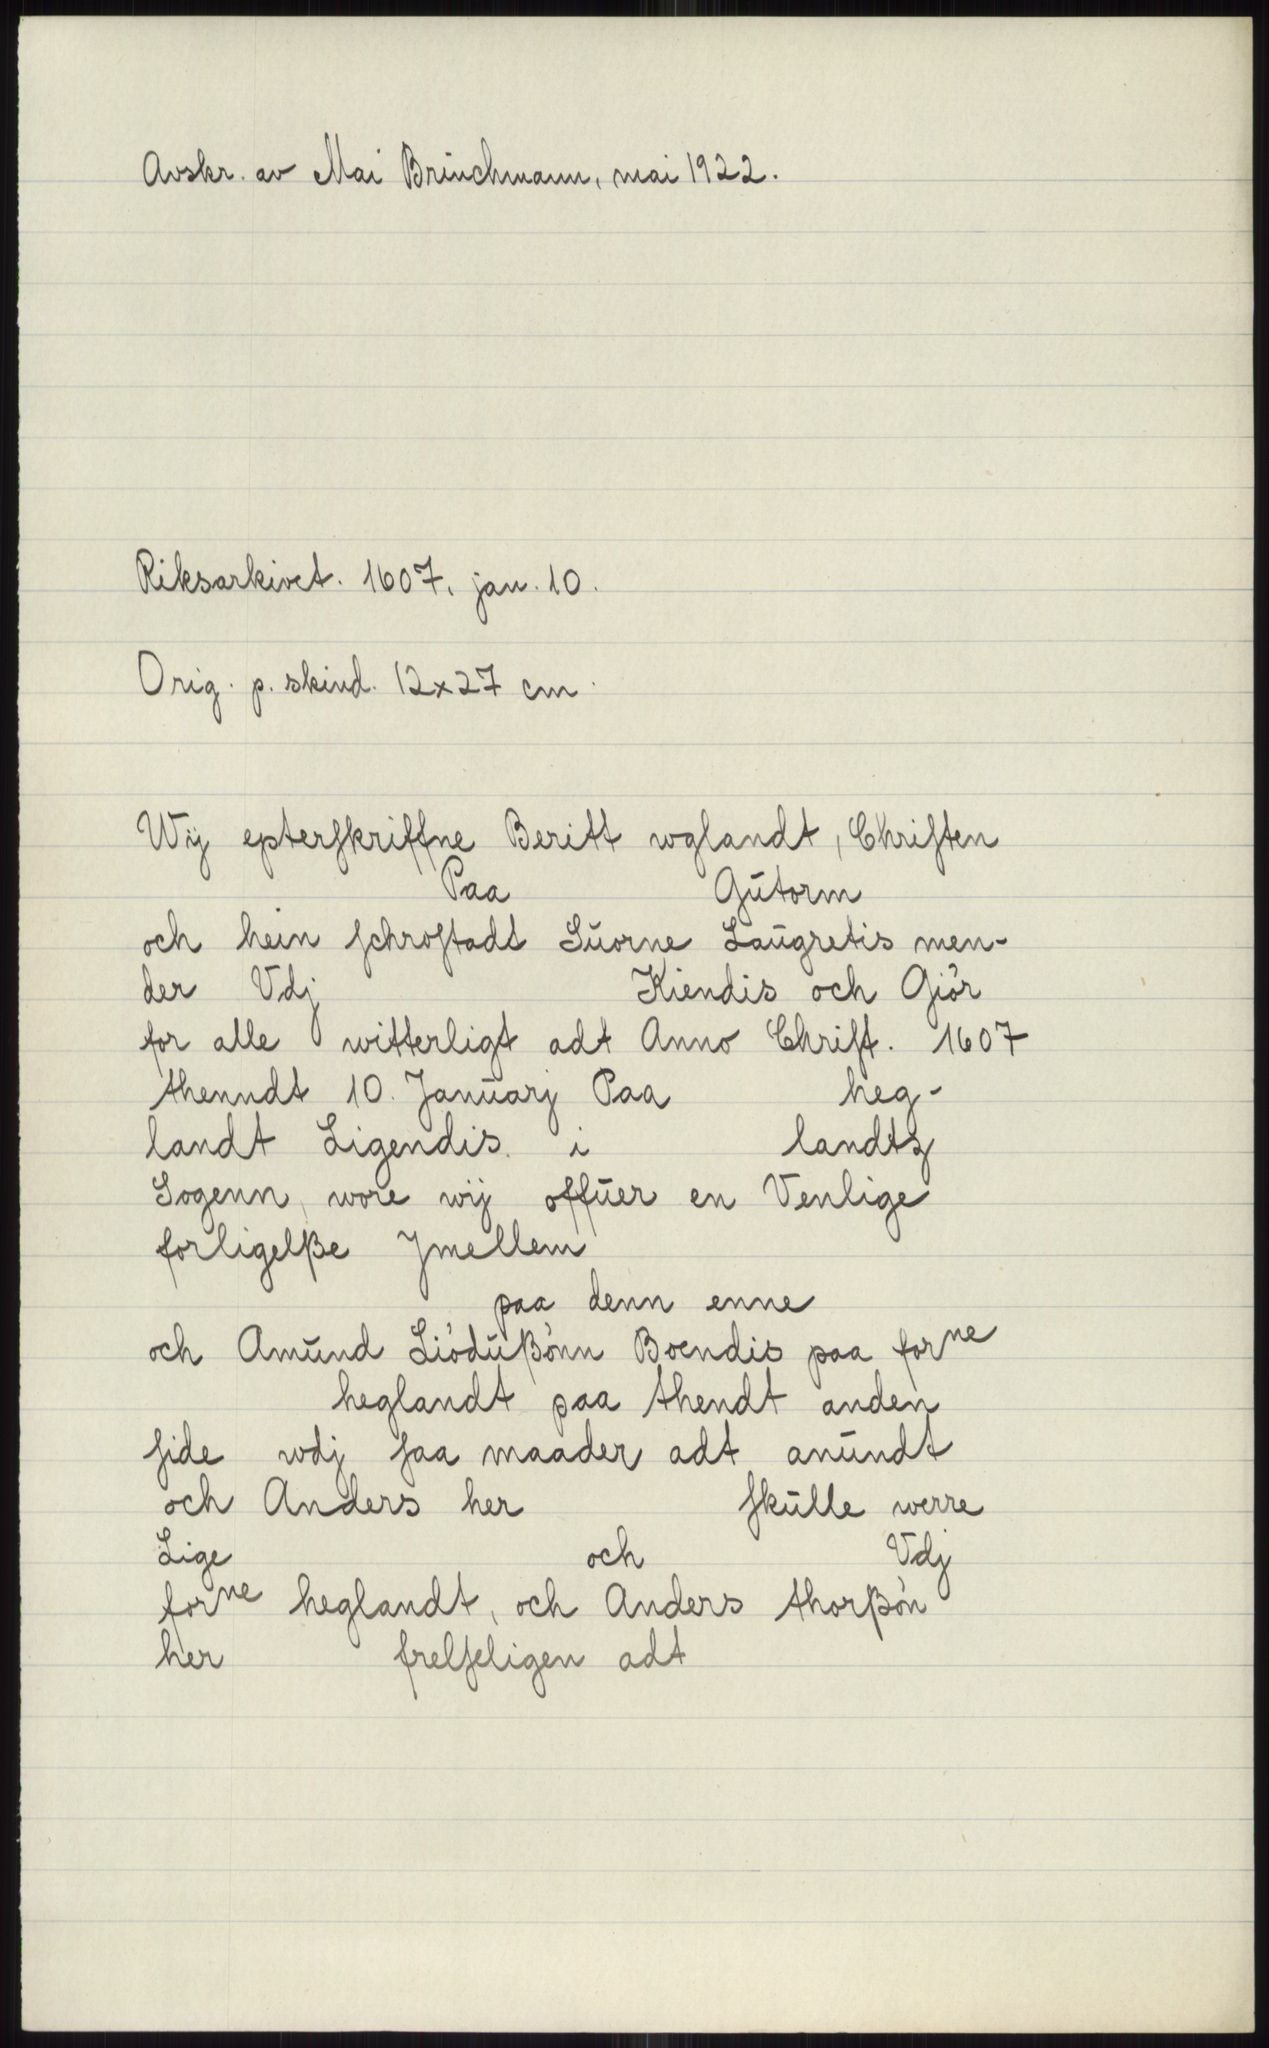 Avskr. av Mai Brinchmann, mai 1922.
Riksarkivet. 1607, jan. 10.
Orig. p. skind. 12x27 cm.
Wij epterſkriffne Beritt wglandt, Chriſten
Paa Gŭtorm
och hein ſchroſtadt Sŭorne Laŭgretis men-
der Vdj Kiendis och Giör
for alle witterligt adt Anno Chriſt. 1607
thenndt 10. Janŭarj Paa heg-
landt Ligendis i landtz
Sogenn, wore wij offŭer en Venlige
forligelße Jmellem
paa denn enne
och Amŭnd Liödŭßönn Boendis paa forne
heglandt paa thendt anden
ſide wdj ſaa maader adt anŭndt
och Anders her ſkŭlle werre
Lige och Vdj
forne heglandt, och Anders thorßön
her frelſeligen adt